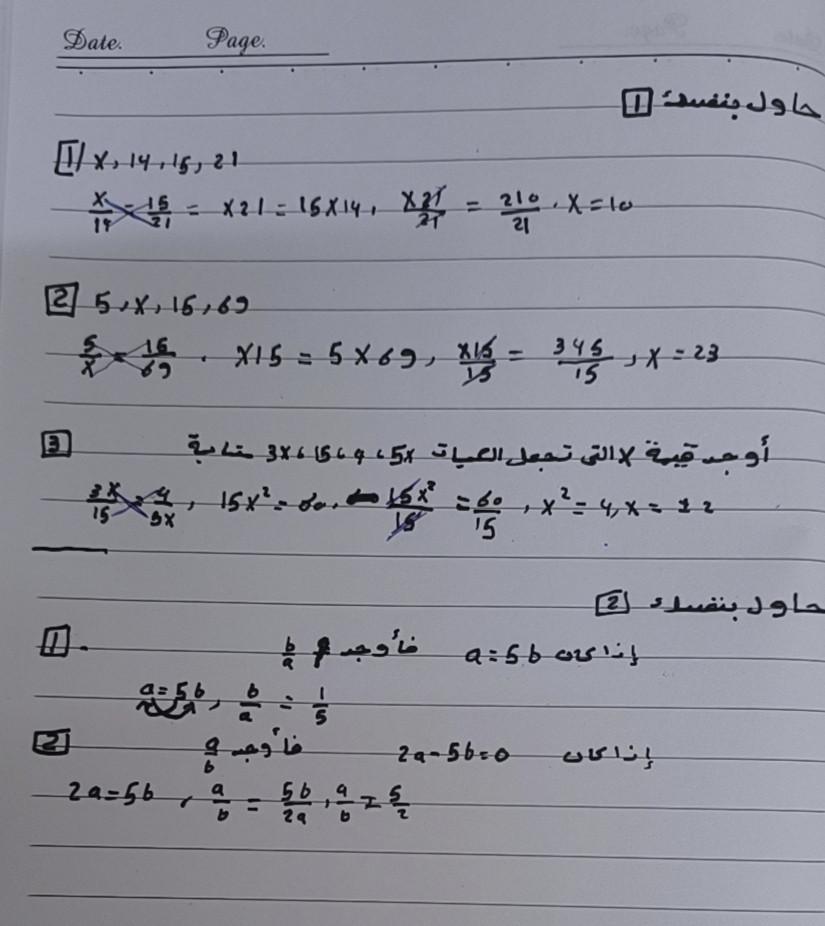 Date. Page.
حاول بنفسك [1]
[1] x, 14, 15, 21
x/14 = 15/21 = x21 = 15×14, x21/21 = 210/21 . x = 10
[2] 5, x, 15, 69
5/x = 15/69 . x15 = 5×69, x15/15 = 345/15, x = 23
[3] أوجد قيمة x التى تجعل الكميات 3x، 15، 4، 5x متناسبة
3x/15 = 4/5x, 15x² = 60, 15x²/15 = 60/15, x² = 4, x = ±2
حاول بنفسك [2]
[1]. إذا كان a = 5b فأوجد b/a
a = 5b, b/a = 1/5
[2] إذا كان 2a - 5b = 0 فأوجد a/b
2a = 5b, a/b = 5b/2a, a/b = 5/2